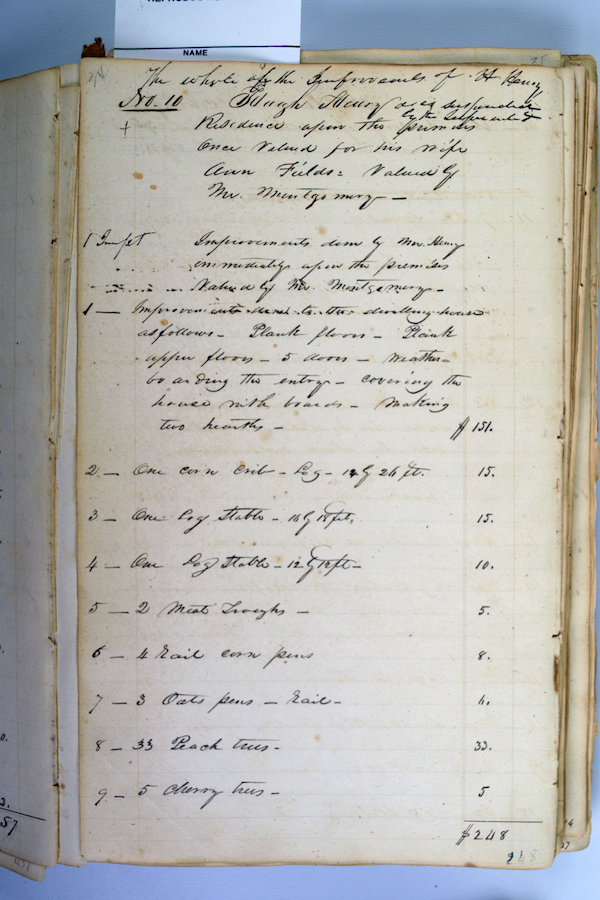 NAME
24
The whole of the Improvements of H Henry
No. 10 Hugh Henry as is suspended
by the
+ Residence upon the premises
Once Valued for his wife
Ann Fields: Valued by
Mr. Montgomery —
1 Impt Improvements done by Mr. Henry
immediately upon the premises
Valued by Mr. Montgomery —
1 — Improvements done to the dwelling house
as follows — Plank floors — Plank
upper floors — 5 doors — Weather-
boarding the entry — covering the
house with boards — Making
two hearths — $151.
2 — One corn Crib — Log — 14 by 26 ft. 15.
3 — One Log Stable — 16 by 18 ft. 15.
4 — One Log Stable — 12 by 12 ft — 10.
5 — 2 Meat Troughs — 5.
6 — 4 Rail corn pens 8.
7 — 3 Oats pens — Rail —
8 — 33 Peach trees — 33.
9 — 5 Cherry trees — 5
$248
248
57